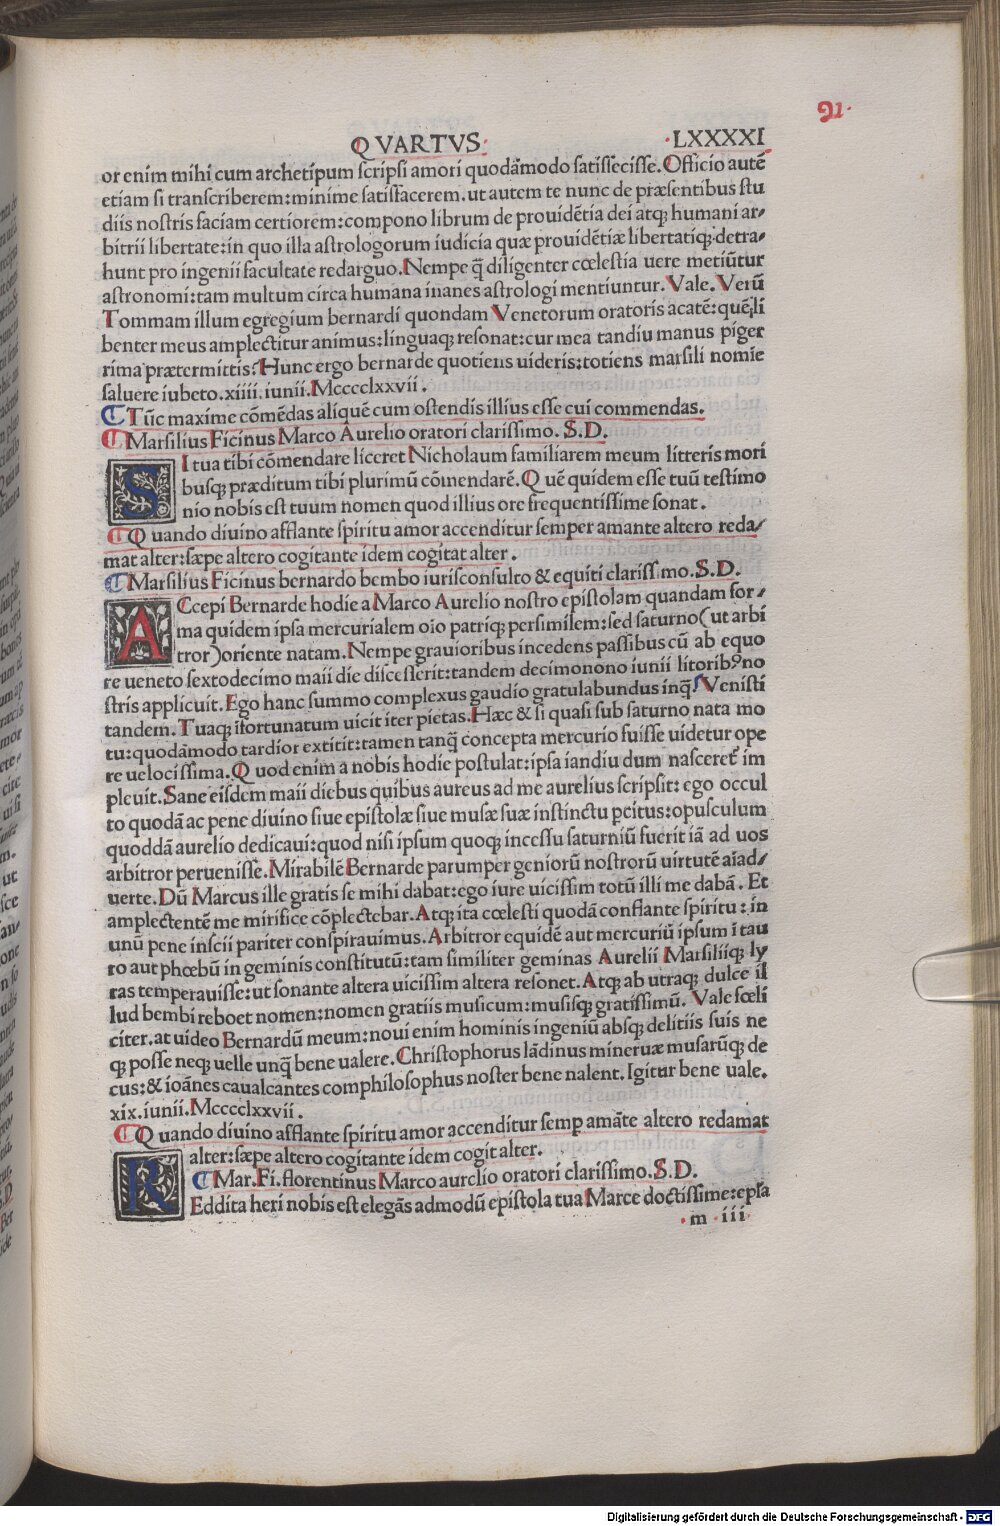 91.
QVARTVS. .LXXXXI
or enim mihi cum archetipum scripsi amori quodāmodo satisfecisse. Officio autē
etiam si transcriberem: minime satisfacerem. ut autem te nunc de præsentibus stu
diis nostris faciam certiorem: compono librum de prouidētia dei atq; humani ar-
bitrii libertate: in quo illa astrologorum iudicia quæ prouidētiæ libertatiq; detra-
hunt pro ingenii facultate redarguo. Nempe q̄ diligenter cœlestia uere metiūtur
astronomi: tam multum circa humana inanes astrologi mentiuntur. Vale. Verū
Tommam illum egregium bernardi quondam Venetorum oratoris acatē: quē li
benter meus amplectitur animus: linguaq; resonat: cur mea tandiu manus piger
rima prætermittis? Hunc ergo bernarde quotiens uideris: totiens marsili nomīe
saluere iubeto. xiiii. iunii. Mcccclxxvii.
Tūc maxime cōmēdas aliquē cum ostendis illius esse cui commendas.
Marsilius Ficinus Marco Aurelio oratori clarissimo. S.D.
SI tua tibi cōmendare liceret Nicholaum familiarem meum litteris mori
busq; præditum tibi plurimū cōmendarē. Quē quidem esse tuū testimo
nio nobis est tuum nomen quod illius ore frequentissime sonat.
Quando diuino afflante spiritu amor accenditur semper amante altero reda-
mat alter: sæpe altero cogitante idem cogitat alter.
Marsilius Ficinus bernardo bembo iurisconsulto & equiti clarissimo. S.D.
ACcepi Bernarde hodie a Marco Aurelio nostro epistolam quandam for-
ma quidem ipsa mercurialem oīo patriq; persimilem: sed saturno (ut arbi
tror) oriente natam. Nempe grauioribus incedens passibus cū ab equo
re ueneto sextodecimo maii die discesserit: tandem decimonono iunii litorib9 no
stris applicuit. Ego hanc summo complexus gaudio gratulabundus inq̄ Venisti
tandem. Tuaq; ifortunatum uicit iter pietas. Hæc & si quasi sub saturno nata mo
tu: quodāmodo tardior extitit: tamen tanq̄ concepta mercurio fuisse uidetur ope
re uelocissima. Quod enim a nobis hodie postulat: ipsa iandiu dum nasceret im
pleuit. Sane eisdem maii diebus quibus aureus ad me aurelius scripsit: ego occul
to quodā ac pene diuino siue epistolæ siue musæ suæ instinctu pcitus: opusculum
quoddā aurelio dedicaui: quod nisi ipsum quoq; incessu saturniū fuerit iā ad uos
arbitror peruenisse. Mirabilē Bernarde parumper geniorū nostrorū uirtutē aiad-
uerte. Dū Marcus ille gratis se mihi dabat: ego iure uicissim totū illi me dabā. Et
amplectentē me mirifice cōplectebar. Atq; ita cœlesti quodā conflante spiritu: in
unū pene inscii pariter conspirauimus. Arbitror equidē aut mercuriū ipsum ī tau
ro aut phœbū in geminis constitutū: tam similiter geminas Aurelii Marsiliiq; ly
ras temperauisse: ut sonante altera uicissim altera resonet. Atq; ab utraq; dulce il
lud bembi reboet nomen: nomen gratiis musicum: musisq; gratissimū. Vale fœli
citer. at uideo Bernardū meum: noui enim hominis ingeniū absq; delitiis suis ne
q; posse neq; uelle unq̄ bene ualere. Christophorus lādinus mineruæ musarūq; de
cus: & ioānes caualcantes comphilosophus noster bene nalent. Igitur bene uale.
xix. iunii. Mcccclxxvii.
Quando diuino afflante spiritu amor accenditur semp amāte altero redamat
alter: sæpe altero cogitante idem cogitat alter.
Mar. Fi. florentinus Marco aurelio oratori clarissimo. S.D.
REddita heri nobis est elegās admodū epistola tua Marce doctissime: epła
.m .iii.
Digitalisierung gefördert durch die Deutsche Forschungsgemeinschaft - DFG